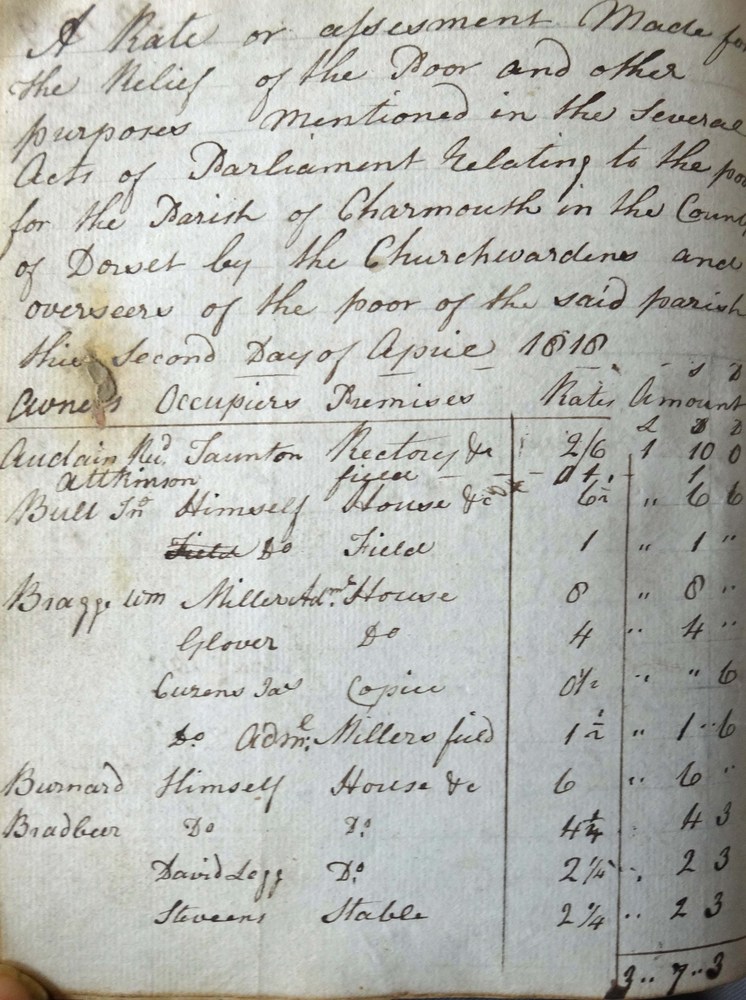 A Rate or assesment Made for
the Relief of the Poor and other
purposes mentioned in the Several
Acts of Parliament Relating to the poor
for the Parish of Charmouth in the County
of Dorset by the Churchwardens and
overseers of the poor of the said parish
this Second Day of April 1818
S D
Owners Occupiers Premises Rates Amount
L S D
Audain Revd Taunton Rectory &c 2/6 1 10 0
Attkinson field 1
Bull Jno Himself House &c 6½ " 6 6
Field Do Field 1 " 1 "
Bragge Wm Miller Adml House 8 " 8 "
Glover Do 4 " 4 "
Curens Jas Copice 0½ " " 6
Do Adml Millers field 1½ " 1 " 6
Burnard Himself House &c 6 " 6 "
Bradbeer Do Do 4¼ 4 3
David Legg Do 2¼ " 2 3
Steveens Stable 2¼ " 2 3
3 " 7 " 3